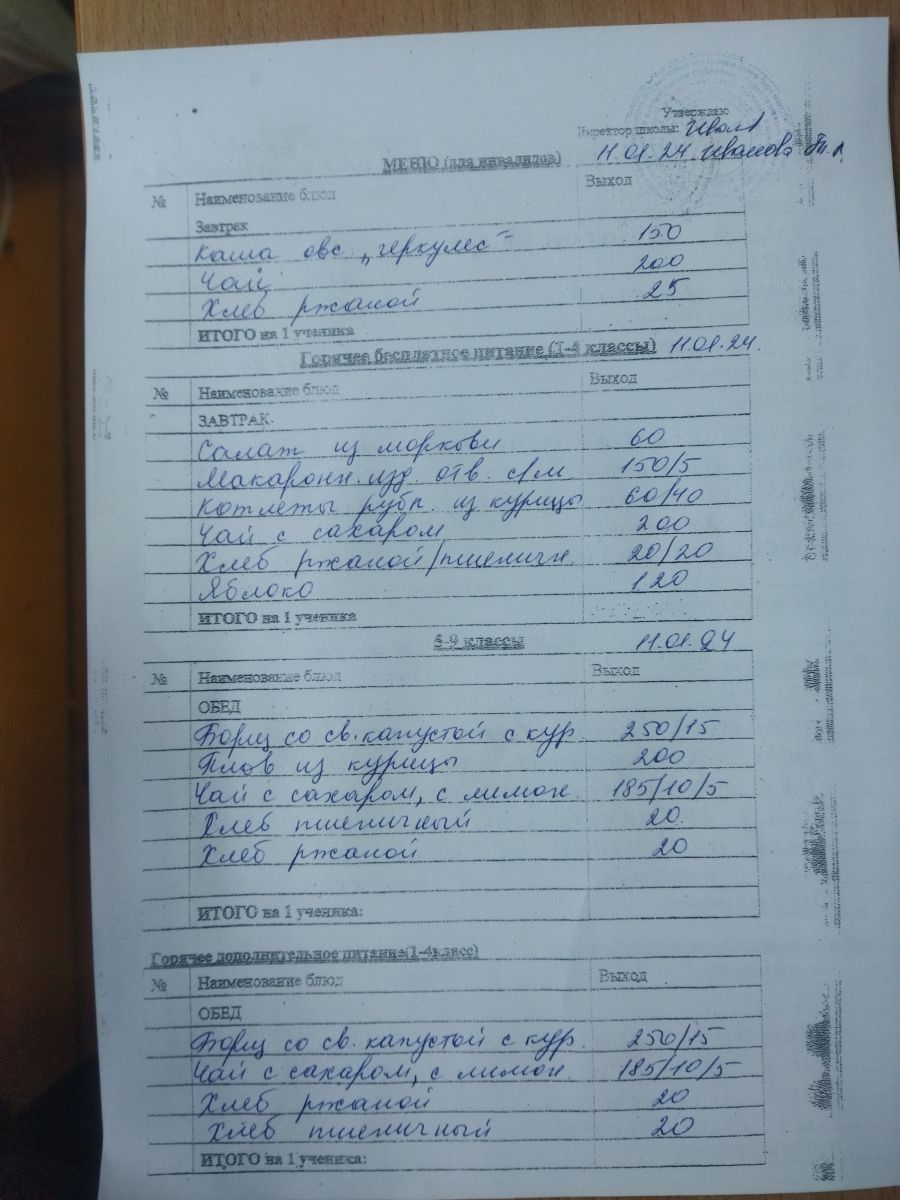 Утверждаю
Директор школы:
МЕНЮ (для инвалидов) 11.01.24 Иванова
№ Наименование блюд Выход
Завтрак
Каша овс „геркулес" 150
Чай 200
Хлеб ржаной 25
ИТОГО на 1 ученика
Горячее бесплатное питание (1-4 классы) 11.01.24.
№ Наименование блюд Выход
ЗАВТРАК.
Салат из моркови 60
Макаронн. изд. отв. с/м 150/5
Котлеты рубл. из курицы 60/40
Чай с сахаром 200
Хлеб ржаной/пшеничн. 20/20
Яблоко 120
ИТОГО на 1 ученика
5-9 классы 11.01.24
№ Наименование блюд Выход
ОБЕД
Борщ со св. капустой с кур 250/15
Плов из курицы 200
Чай с сахаром, с лимон. 185/10/5
Хлеб пшеничный 20.
Хлеб ржаной 20
ИТОГО на 1 ученика:
Горячее дополнительное питание(1-4класс)
№ Наименование блюд Выход
ОБЕД
Борщ со св. капустой с кур. 250/15
Чай с сахаром, с лимон. 185/10/5
Хлеб ржаной 20
Хлеб пшеничный 20
ИТОГО на 1 ученика: